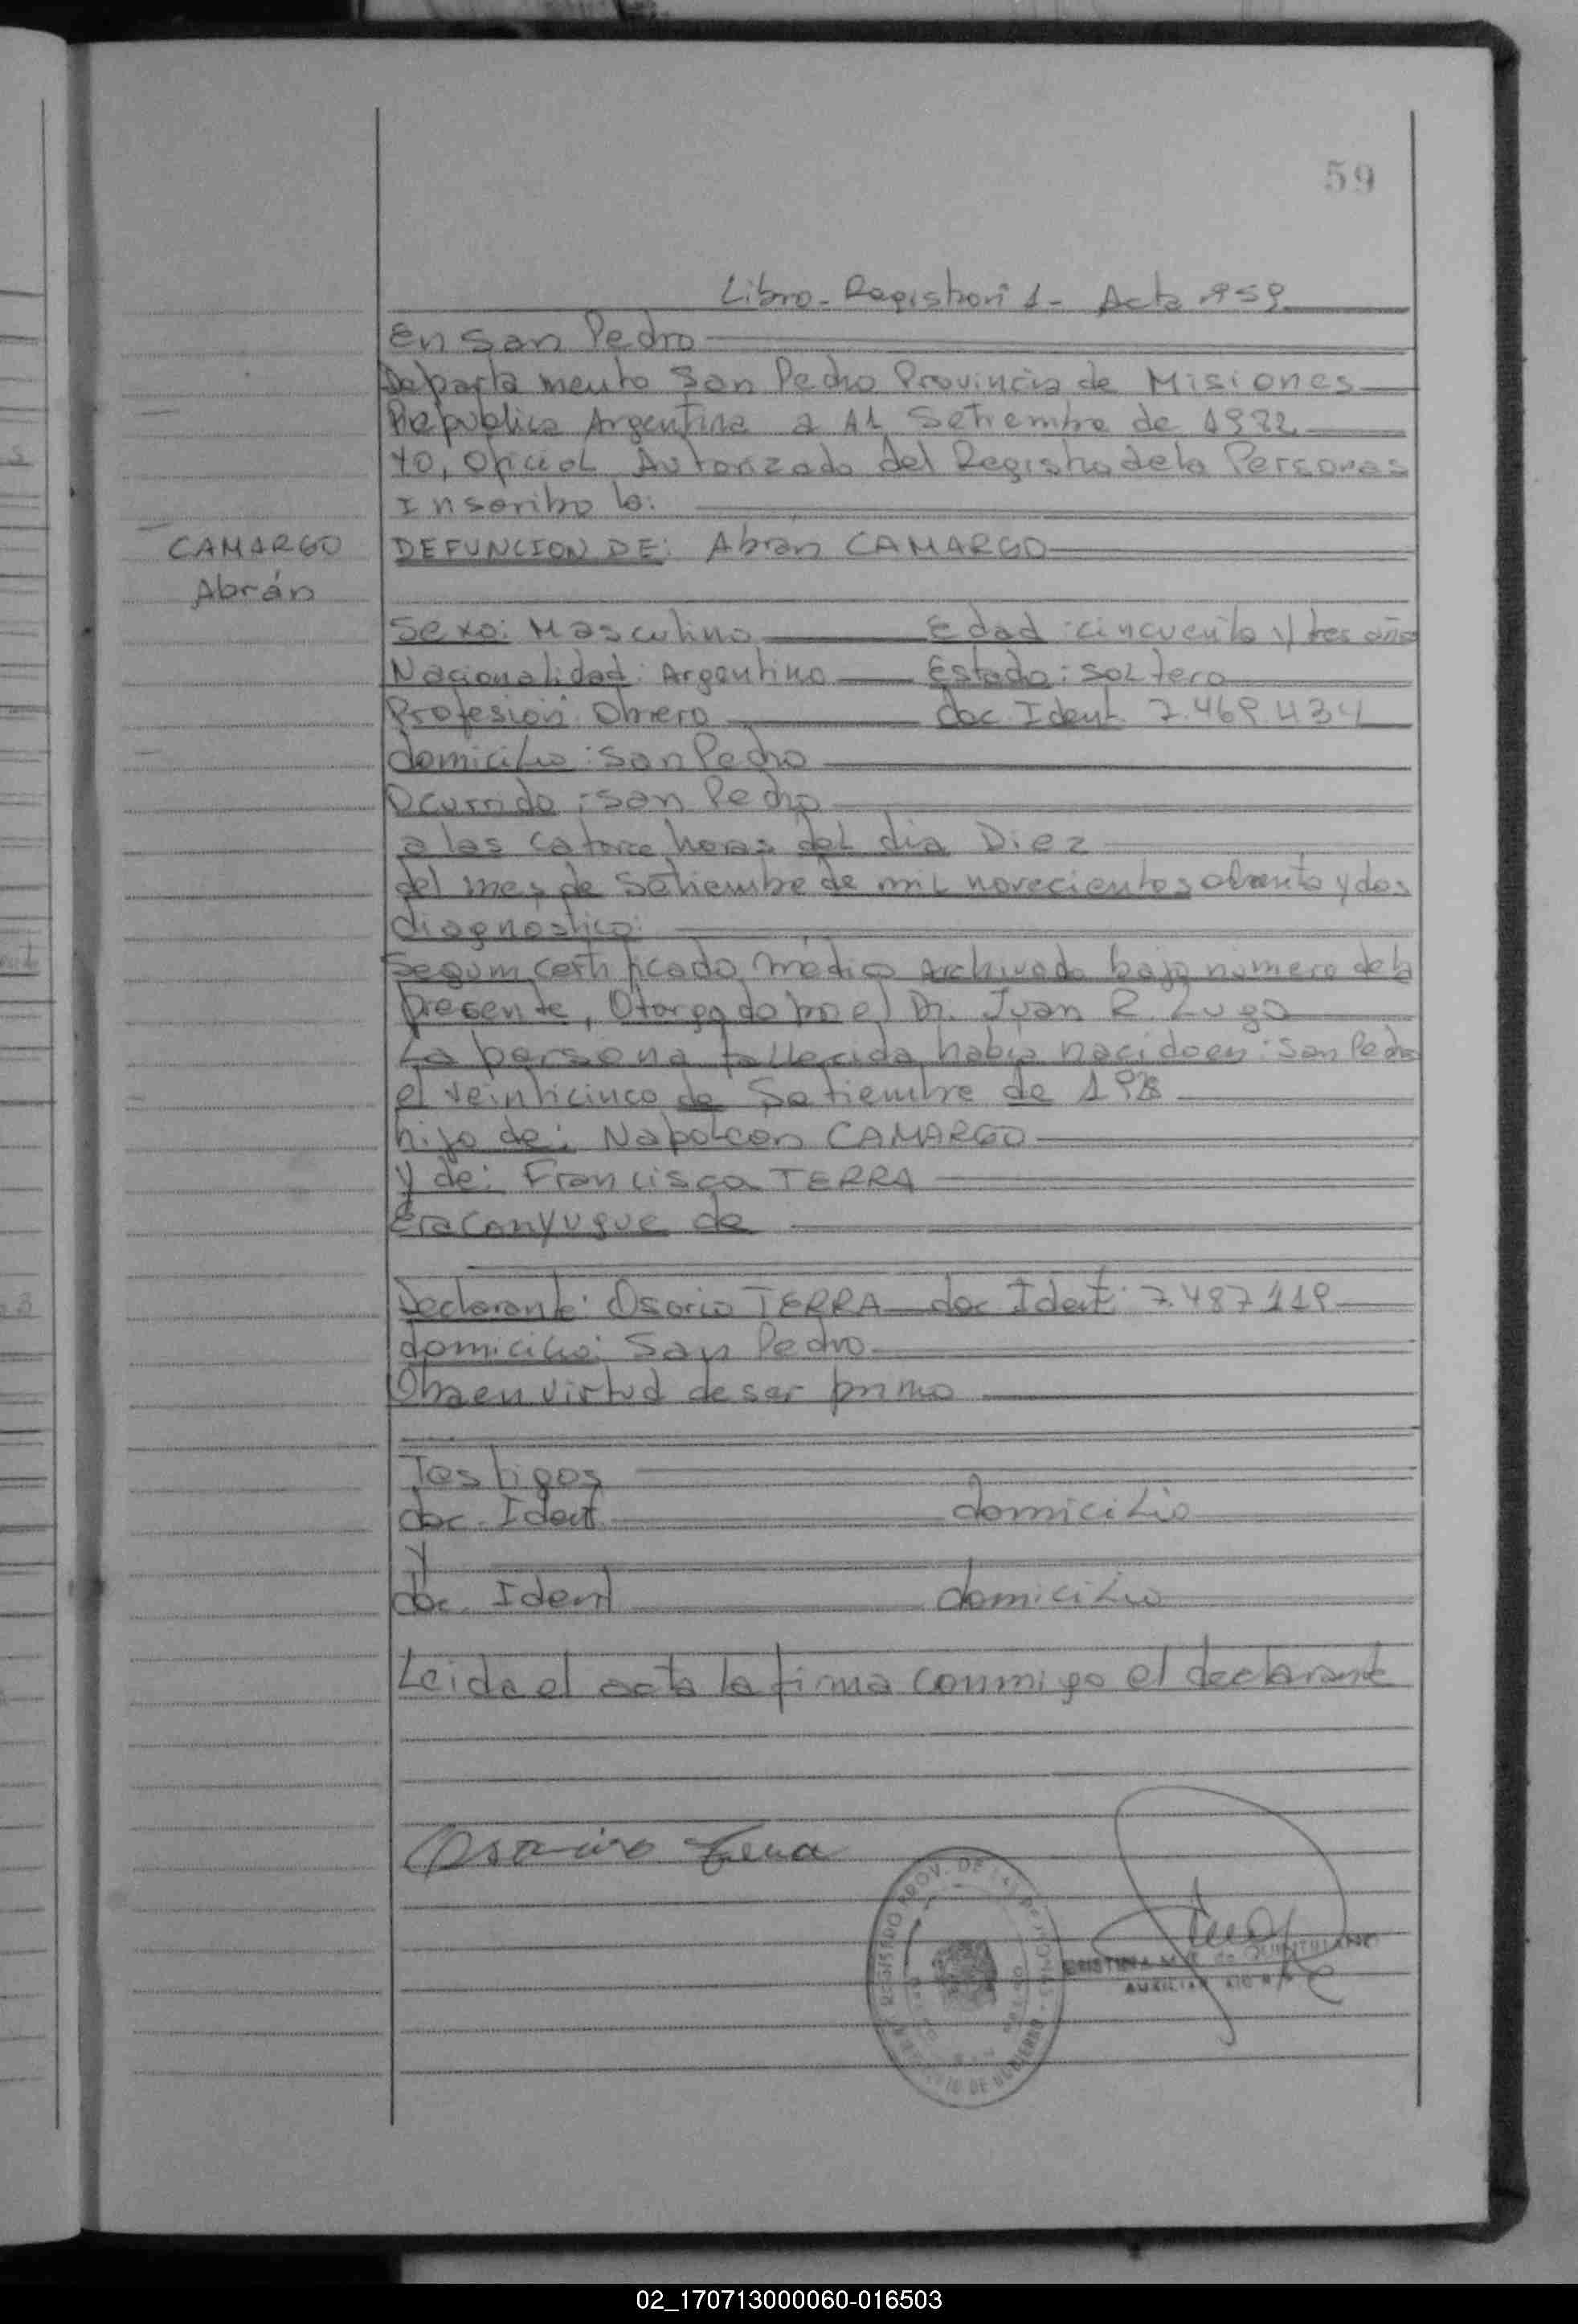 59
Libro - Registro nº 1 - Acta nº 59
En San Pedro
Departamento San Pedro Provincia de Misiones
Republica Argentina a 11 Setiembre de 1982
Yo, Oficial Autorizado del Registro de la Personas
Inscribo la:
CAMARGO
Abrán
DEFUNCION DE: Abrán CAMARGO
Sexo: Masculino Edad: cincuenta y tres años
Nacionalidad: Argentino Estado: Soltero
Profesión: Obrero doc. Ident. 7.469.434
domicilio: San Pedro
Ocurrido: San Pedro
a las catorce horas del dia Diez
del mes de Setiembre de mil novecientos ochenta y dos
diagnostico:
Segum certificado médico Archivado bajo numero de la
presente, Otorgado por el Dr. Juan R. Lugo
La persona fallecida habia nacido en: San Pedro
el veinticinco de Setiembre de
hijo de: Napoleon CAMARGO
y de: Francisca TERRA
Era Conyugue de
Declarante: Osorio TERRA doc Ident: 7.487.119
domicilio: San Pedro
Obra en virtud de ser primo
Testigos
doc. Ident domicilio
y
doc. Ident domicilio
Leida el acta la firma conmigo el declarante
Osorio Terra
REGISTRO PROV. DE LAS PERSONAS
DE GOBIERNO
CRISTINA
AUXILIAR
02_170713000060-016503